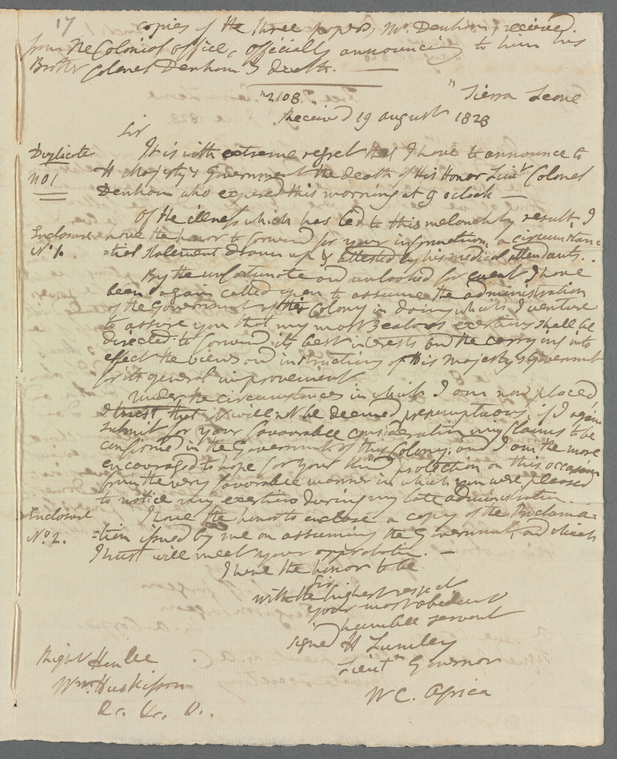 17
Copies of the three papers, Mr. Denham, received
from the Colonial office, officially announcing to him his
Brother Colonel Denham's death. —
"2108... "Sierra Leone
Received 19 august 1828
Sir
Duplicate
No 1
It is with extreme regret that I have to announce to
H Majesty's Government the death of His Honor Lieut. Colonel
Denham who expired this morning at 9 o'clock —
Of the illness which has led to this melancholy result I
Enclosure
No. 1.
have the honor to forward for your information a circumstan-
-tial statement drawn up & attested by his medical attendants..
By the unfortunate and unlooked for event I have
been again called upon to assume the administration
of the Government of this Colony in doing which I venture
to assure you that my most Zealous exertions shall be
directed to forward its best interests and the carrying into
effect the views and instructions of His Majesty's Government
for its general improvement
Under the circumstances in which I am now placed
I trust that it will not be deemed presumptuous if I again
submit for your favourable consideration my claims to be
confirmed in the Government of this Colony, and I am the more
encouraged to hope for your kind protection on this occasion
from the very favorable manner in which you were pleased
to notice my exertions during my late administration
Enclosure
No. 2.
I have the honor to enclose a copy of the Proclama-
-tion issued by me on assuming the Government, and which
I trust will meet your approbation. —
I have the honor to be
Sir
with the highest respect
your most obedient
humble servant
signed H Lumley
Lieut. Governor
W C. Africa
Right Honble
Wm. Huskisson
&c. &c. &c.